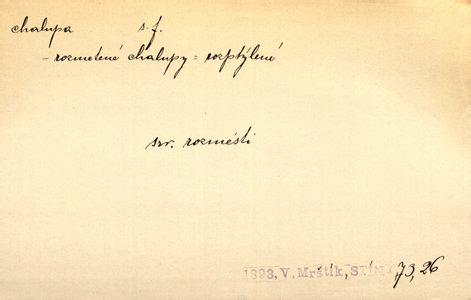 chalupa s. f.
- rozmetené chalupy = rozptýlené
srv. rozmésti
1893, V. Mrštík, STÍNY, 73, 26